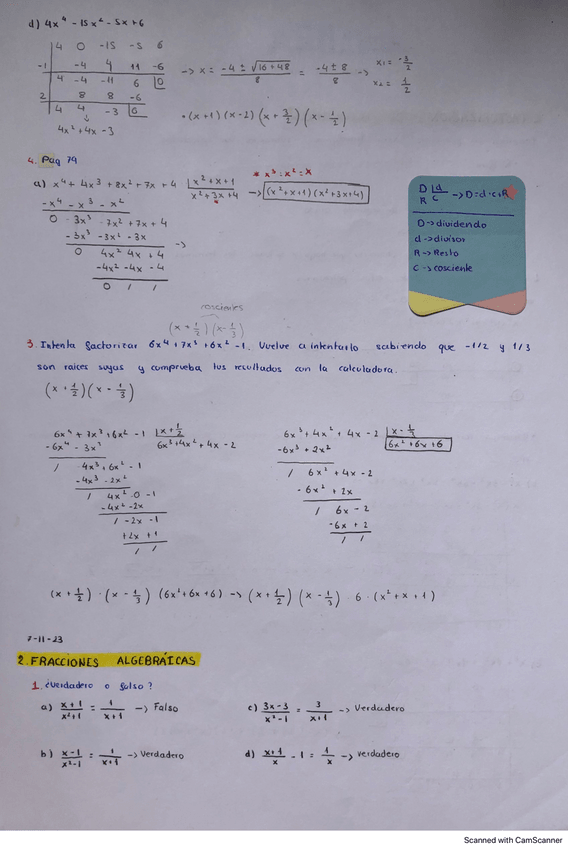 d) 4x⁴ - 15x² - 5x + 6
4 0 -15 -5 6
-1 -4 4 11 -6
4 -4 -11 6 0
2 8 8 -6
4 4 -3 0
4x² + 4x - 3
-> x = -4 ± √16 + 48 / 8 = -4 ± 8 / 8 -> x₁ = -3/2
x₂ = 1/2
· (x + 1) (x - 2) (x + 3/2) (x - 1/2)
4. Pag 79
* x³ : x² = x
a) x⁴ + 4x³ + 8x² + 7x + 4 | x² + x + 1
x² + 3x + 4 -> (x² + x + 1) (x² + 3x + 4)
-x⁴ - x³ - x²
0 3x³ 7x² + 7x + 4
-3x³ -3x² - 3x ->
0 4x² 4x + 4
-4x² - 4x - 4
0 / /
D | d
R c -> D = d · c + R
D -> dividendo
d -> divisor
R -> Resto
C -> cosciente
coscientes
(x + 1/2) (x - 1/3)
3. Intenta factorizar 6x⁴ + 7x³ + 6x² - 1. Vuelve a intentarlo sabiendo que -1/2 y 1/3
son raíces suyas y comprueba tus resultados con la calculadora.
(x + 1/2) (x - 1/3)
6x⁴ + 7x³ + 6x² - 1 | x + 1/2
6x³ + 4x² + 4x - 2
-6x⁴ - 3x³
/ 4x³ + 6x² - 1
-4x³ - 2x²
/ 4x² 0 - 1
-4x² - 2x
/ -2x - 1
+2x + 1
/ /
6x³ + 4x² + 4x - 2 | x - 1/3
6x² + 6x + 6
-6x³ + 2x²
/ 6x² + 4x - 2
-6x² + 2x
/ 6x - 2
-6x + 2
/ /
(x + 1/2) · (x - 1/3) (6x² + 6x + 6) -> (x + 1/2) (x - 1/3) 6 · (x² + x + 1)
7-11-23
2. FRACCIONES ALGEBRÁICAS
1. ¿Verdadero o falso?
a) x + 1 / x² + 1 = 1 / x + 1 -> Falso
c) 3x - 3 / x² - 1 = 3 / x + 1 -> Verdadero
b) x - 1 / x² - 1 = 1 / x + 1 -> Verdadero
d) x + 1 / x - 1 = 1 / x -> verdadero
Scanned with CamScanner